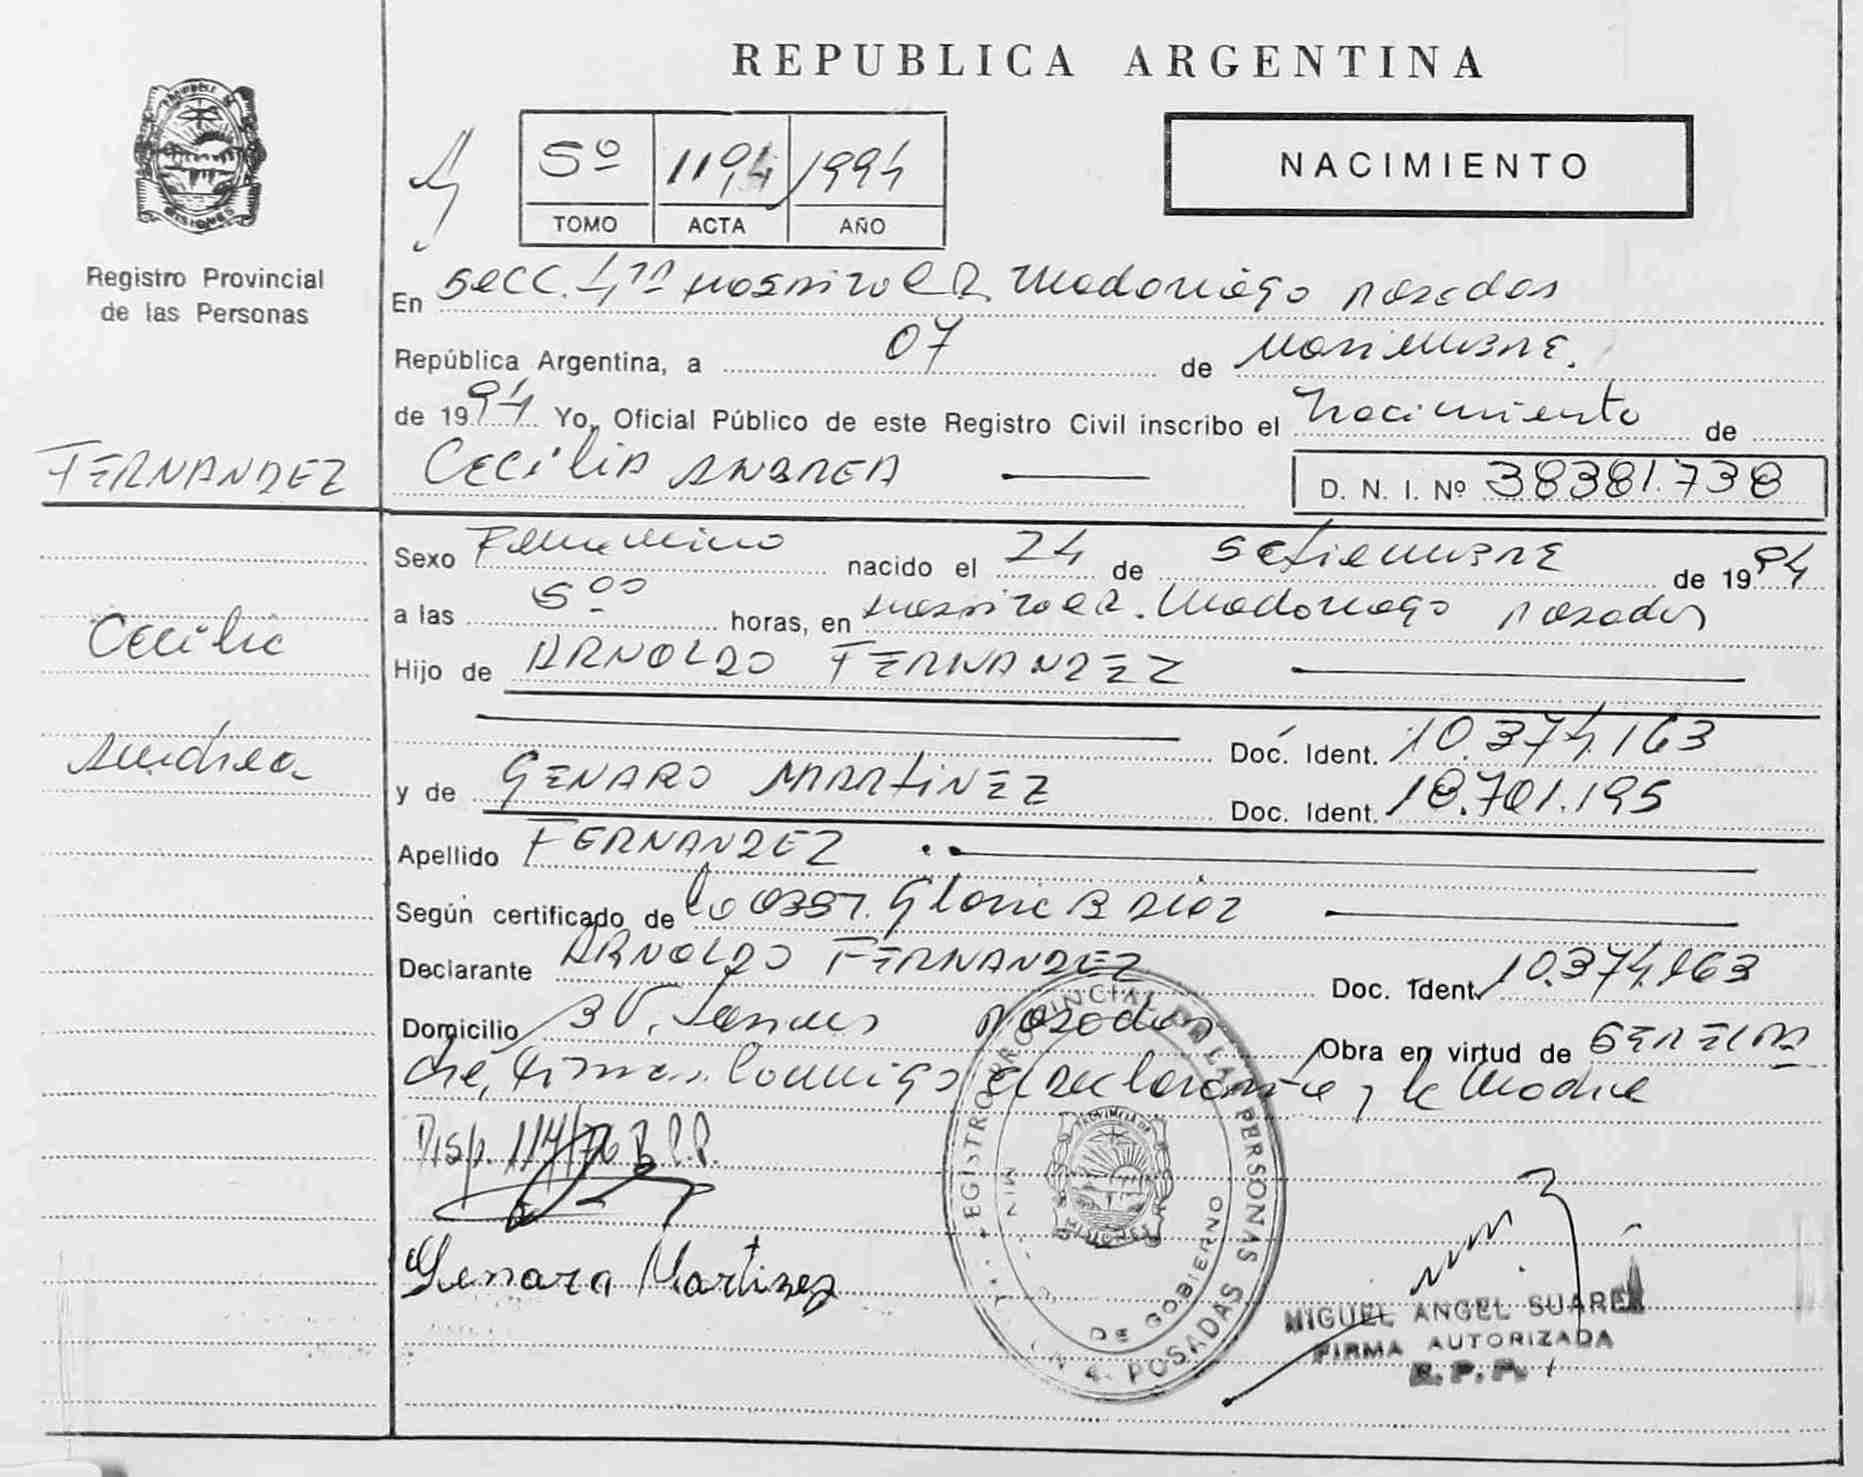 REPUBLICA ARGENTINA
Registro Provincial
de las Personas
5º 1194 1994
TOMO ACTA AÑO
NACIMIENTO
En Secc. 1ra Hospital R. Madariaga Posadas
República Argentina, a 07 de Noviembre.
de 1994 Yo, Oficial Público de este Registro Civil inscribo el Nacimiento de
FERNANDEZ
CECILIA ANDREA
D. N. I. Nº 38381.738
Sexo Femenino nacido el 24 de Setiembre de 1994
a las 5 00 horas, en Hospital R. Madariaga Posadas
Cecilia
Hijo de ARNOLDO FERNANDEZ
Andrea
Doc. Ident. 10.374.163
y de GENARO MARTINEZ Doc. Ident. 18.701.195
Apellido FERNANDEZ
Según certificado de la Obst. Gloria B Diaz
Declarante ARNOLDO FERNANDEZ Doc. Ident. 10.374.163
Domicilio Posadas Obra en virtud de
conmigo declarante y la Madre
Disp. 114/76
Genara Martinez
REGISTRO PROVINCIAL DE LAS PERSONAS
MIN. DE GOBIERNO
POSADAS
MIGUEL ANGEL SUAREZ
FIRMA AUTORIZADA
R. P. P.